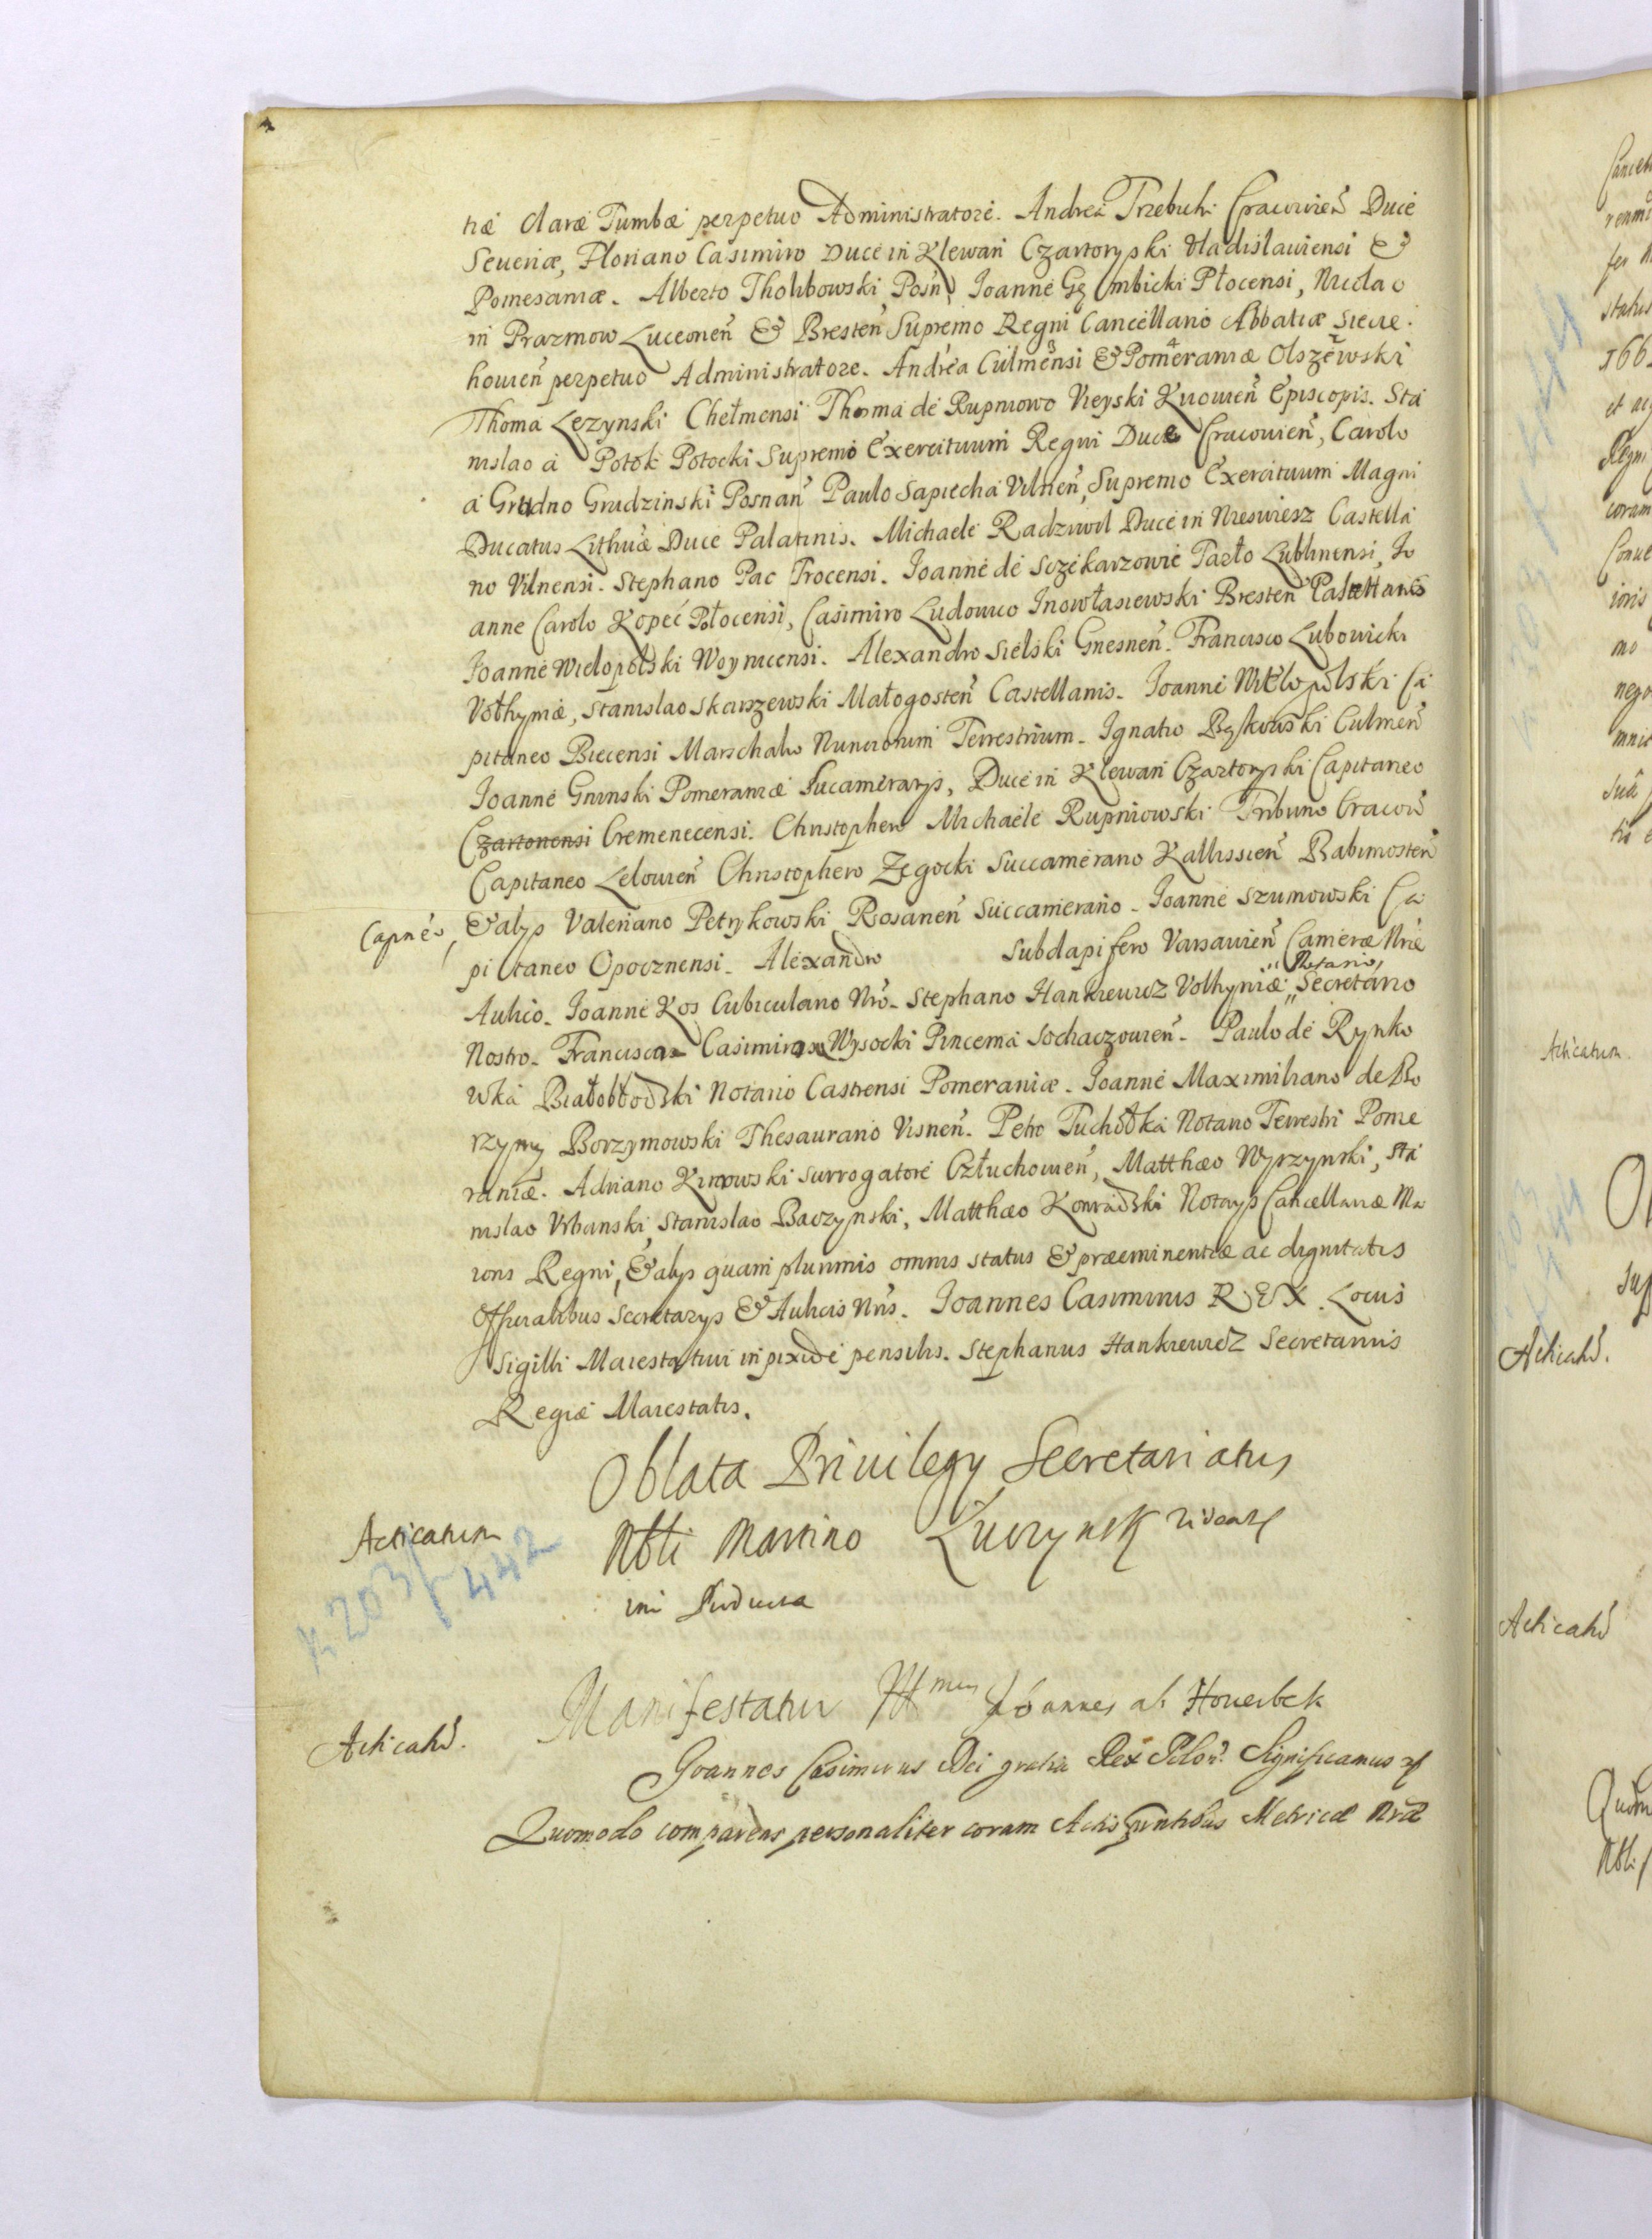 tiæ Claræ Tumbæ perpetuo Administratore. Andrea Trzebicki Cracovień Duce
Severiæ, Floriano Casimiro Duce in Klewań Czartoryski Vladislaviensi &
Pomesaniæ. Alberto Tholibowski Posń, Joanne Gębicki Płocensi, Nicolao
in Prazmow Luceoneń & Bresteń Supremo Regni Cancellario Abbatiæ Sieciе
houień perpetuo Administratore. Andrea Culmensi & Pomeraniæ Olszewski
Thoma Lezynski Chełmensi Thoma de Rupniowo Vieyski Kiiowień Episcopis. Sta
nislao à Potok Potocki Supremo Exercituum Regni Duce Cracovień, Carolo
à Grudno Grudzinski Posnań Paulo Sapiecha Vilneń, Supremo Exercituum Magni
Ducatus Lithuæ Duce Palatinis. Michaele Radziwil Duce in Nieswiesz Castella
no Vilnensi. Stephano Pac Trocensi. Joanne de Sczekarzowic Tarło Lublinensi, Jo
anne Carolo Kopeć Połocensi, Casimiro Ludovico Jnowłasiewski Bresteń Castellanis
Joanne Wielopolski Woynicensi. Alexandro Sielski Gnesneń. Francisco Lubowicki
Vołhyniæ, Stanislao Skarszewski Małogosteń Castellanis. Joanne Wielopolski Ca
pitaneo Biecensi Marschalco Nunciorum Terrestrium. Ignatio Bąkowski Culmeń
Joanne Gninski Pomeraniæ Succamerarys, Duce in Klewań Czartoryski Capitaneo
Czartonensi Cremenecensi. Christophero Michaele Rupniowski Tribuno Cracoviń
Capitaneo Lelovień Christophero Zęgocki Succamerario Kallissień Babimosteń
Capneo, & alys Valeriano Petrykowski Rosaneń Succamerario. Joanne Szumowski Ca
pitaneo Opocznensi. Alexandro Subdapifero Varsavień Cameræ Nræ
Notario,
Aulico. Joanne Kos Cubiculario Nro. Stephano Hankiewicz Volhyniæ " Secretario
Nostro. Francisco Casimiro Wysocki Pincerna Sochaczovień. Paulo de Rynko
wka Białobłodzki Notario Castrensi Pomeraniæ. Joanne Maximiliano de Bo
rzymy Borzymowski Thesaurario Visneń. Petro Tuchołka Notario Terrestri Pome
raniæ. Adriano Kirzowski Surrogatore Człuchovień, Matthæo Wyrzynski, Sta
nislao Vrbanski, Stanislao Baczynski, Matthæo Konradzki Notarys Cancellariæ Ma
ioris Regni, & alys quam plurimis omnis status & præeminentiæ ac dignitatis
Officialibus Secretarys & Aulicis Nris. Joannes Casimirus REX. Locus
Sigilli Maiestatiui in pixide pensilis. Stephanus Hankiewicz Secretarius
Regiæ Maiestatis.
Oblata Privilegy Secretariatus
Acticatum
Nbli Martino
K 203 f 442
Manifestatur Joannes ab Houerbek
Acticatũ.
Joannes Casimirus Dei gratia Rex Poloń. Significamus
Quomodo comparens personaliter coram Actis pntibus Metricæ Nræ
Acticatum.
Acticatũ.
Acticatũ